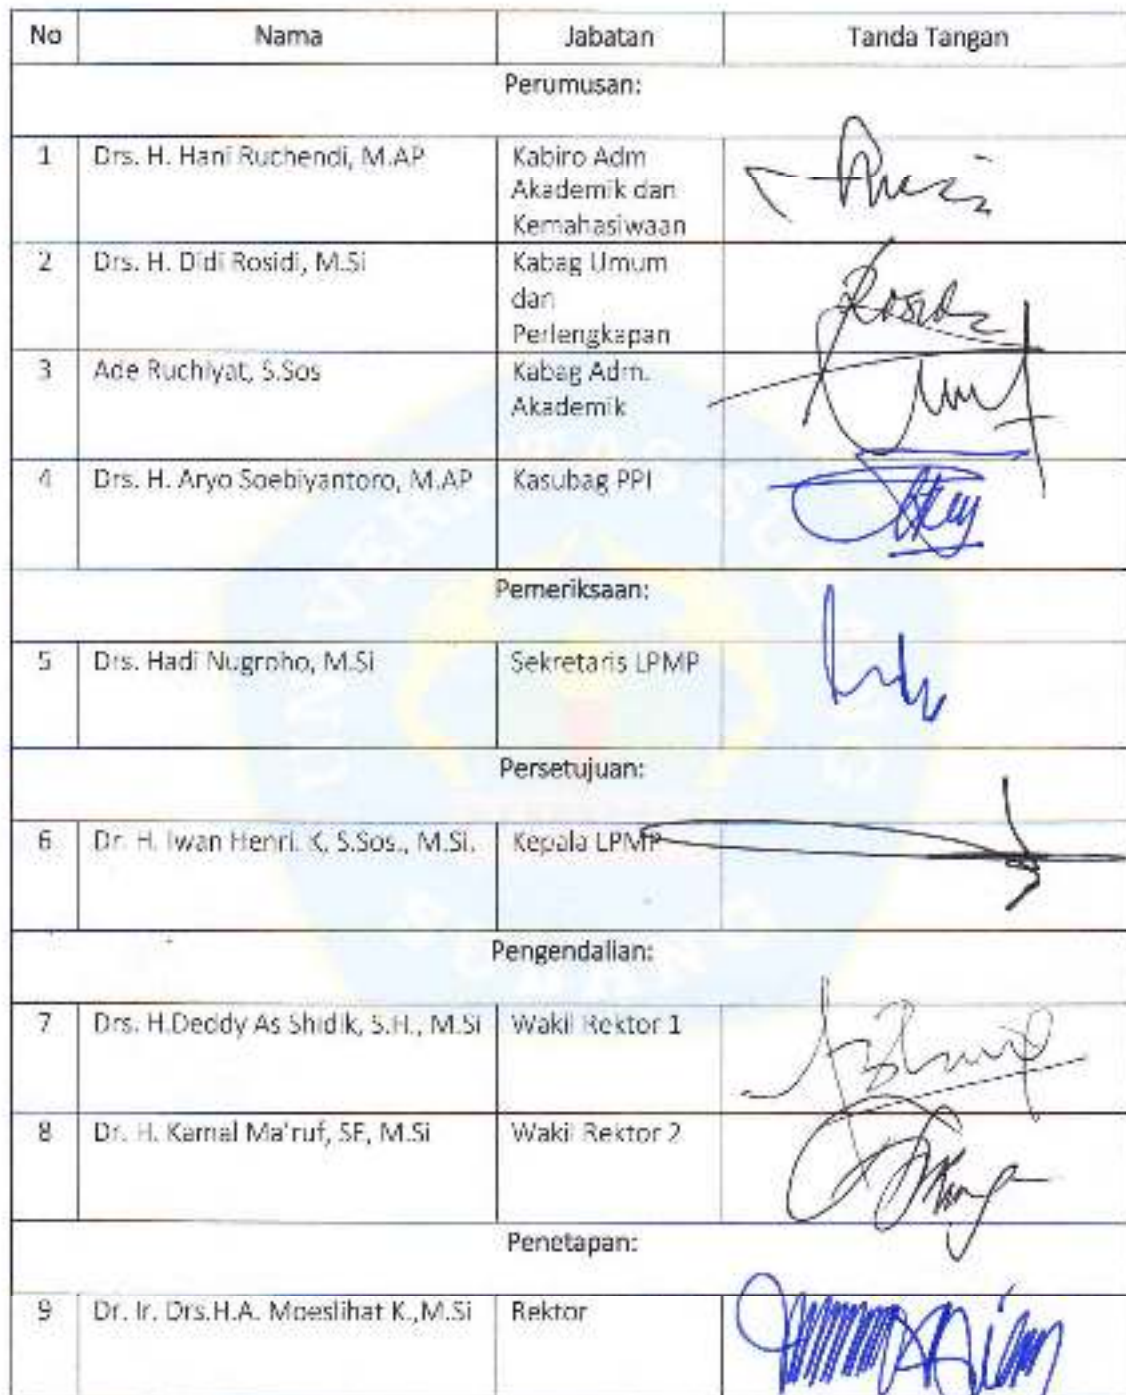 No Nama Jabatan Tanda Tangan
Perumusan:
1 Drs. H. Hani Ruchendi, M.AP Kabiro Adm
Akademik dan
Kemahasiwaan
2 Drs. H. Didi Rosidi, M.Si Kabag Umum
dan
Perlengkapan
3 Ade Ruchiyat, S.Sos Kabag Adm.
Akademik
4 Drs. H. Aryo Soebiyantoro, M.AP Kasubag PPI
Pemeriksaan:
5 Drs. Hadi Nugroho, M.Si Sekretaris LPMP
Persetujuan:
6 Dr. H. Iwan Henri. K, S.Sos., M.Si. Kepala LPMP
Pengendalian:
7 Drs. H.Deddy As Shidik, S.H., M.Si Wakil Rektor 1
8 Dr. H. Kamal Ma'ruf, SE, M.Si Wakil Rektor 2
Penetapan:
9 Dr. Ir. Drs.H.A. Moeslihat K.,M.Si Rektor